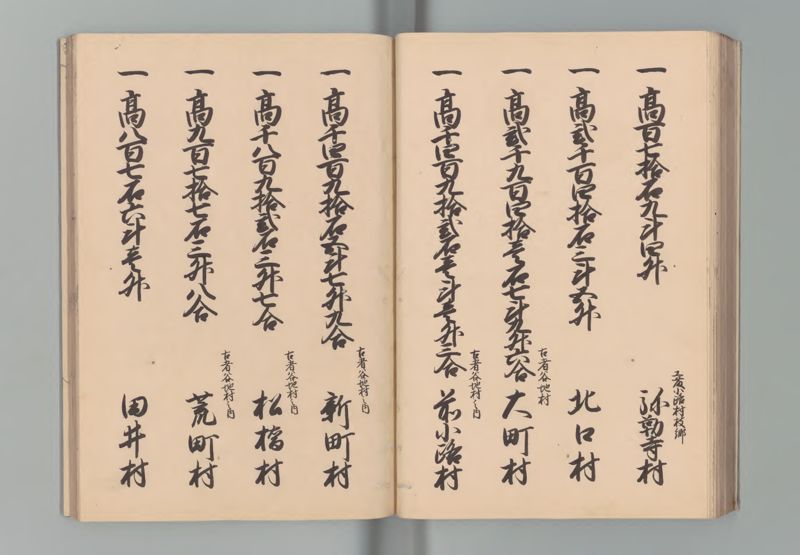 一 高百七拾石九斗四升
工藤小路村枝郷
弥勒寺村
一 高弐千百四拾石三斗五升
北口村
一 高弐千九百四拾壱石七斗九升六合
古者谷地村
大町村
一 高千四百九拾弐石壱斗壱升二合
古者谷地村之内
前小路村
一 高千四百九拾石弐斗七升九合
古者谷地村之内
新町村
一 高千八百九拾弐石三升七合
古者谷地村之内
松橋村
一 高九百七拾七石三升八合
古者谷地村之内
荒町村
一 高八百七石六斗壱升
田井村